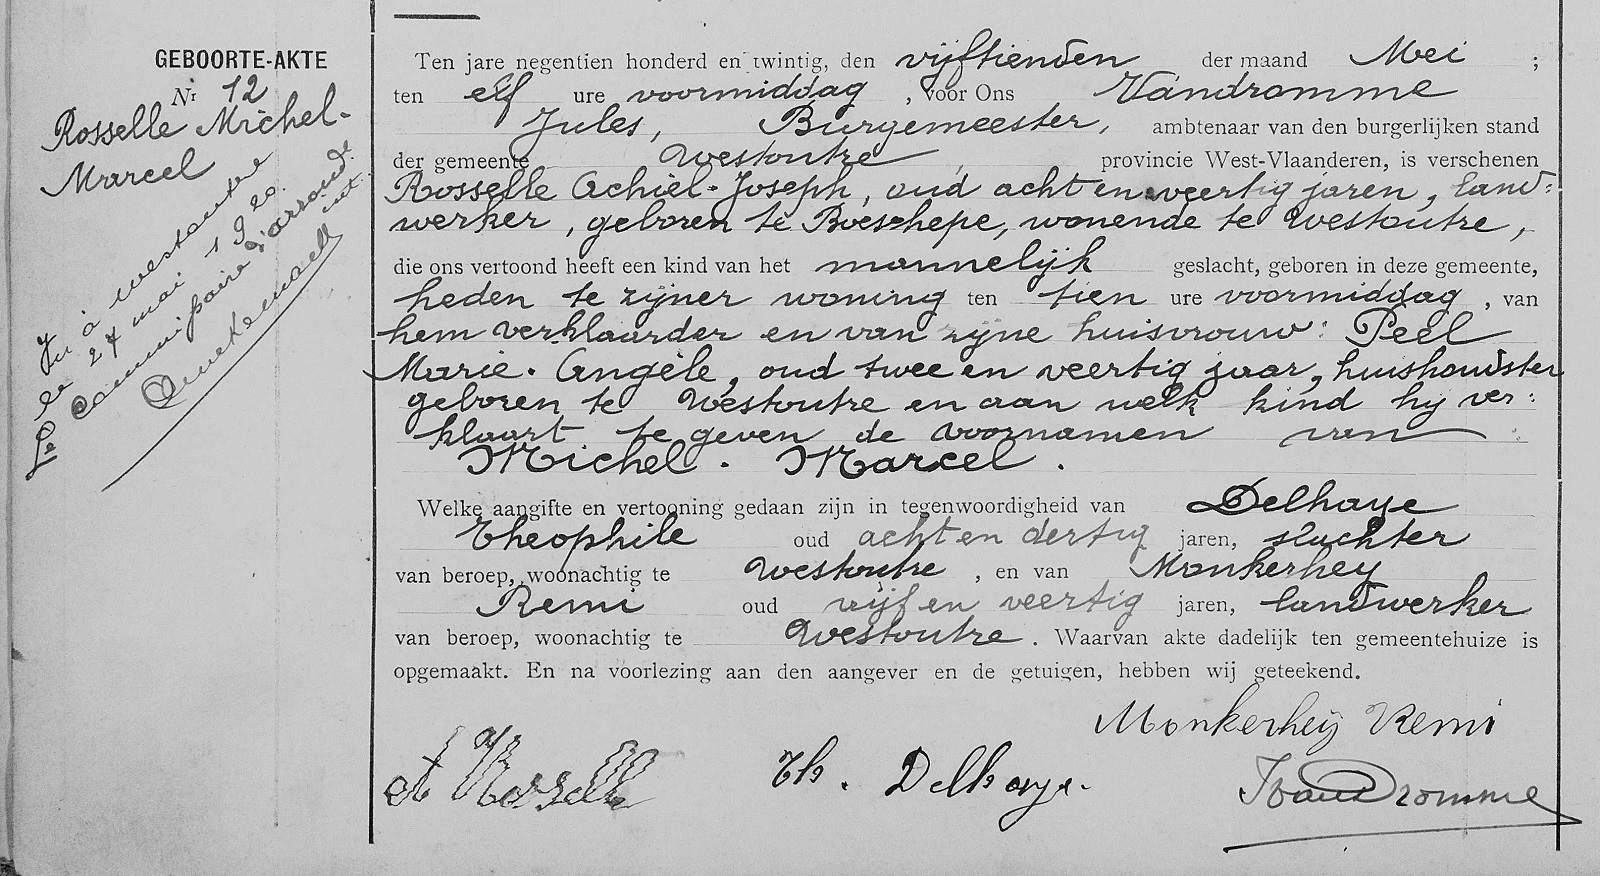 GEBOORTE-AKTE
Nr 12
Rosselle Michel-
Marcel
Vu à Westoutre
le 27 mai 1920.
Le Commissaire d'arrond.
Ten jare negentien honderd en twintig, den vijftienden der maand Mei ;
ten elf ure voormiddag , voor Ons Vandromme
Jules, Burgemeester, ambtenaar van den burgerlijken stand
der gemeente Westoutre provincie West-Vlaanderen, is verschenen
Rosselle Achiel-Joseph, oud acht en veertig jaren, land=
werker, geboren te Boeschepe, wonende te Westoutre,
die ons vertoond heeft een kind van het mannelijk geslacht, geboren in deze gemeente,
heden te zijner woning ten tien ure voormiddag , van
hem verklaarder en van zijne huisvrouw: Peel
Marie-Angèle, oud twee en veertig jaar, huishoudster
geboren te Westoutre en aan welk kind hij ver=
klaart te geven de voornamen van
Michel-Marcel.
Welke aangifte en vertooning gedaan zijn in tegenwoordigheid van Delhaye
Theophile oud acht en dertig jaren, slachter
van beroep, woonachtig te Westoutre , en van Monkerhey
Remi oud vijf en veertig jaren, landwerker
van beroep, woonachtig te Westoutre . Waarvan akte dadelijk ten gemeentehuize is
opgemaakt. En na voorlezing aan den aangever en de getuigen, hebben wij geteekend.
Monkerheij Remi
A Rosselle Th. Delhaye. J Vandromme